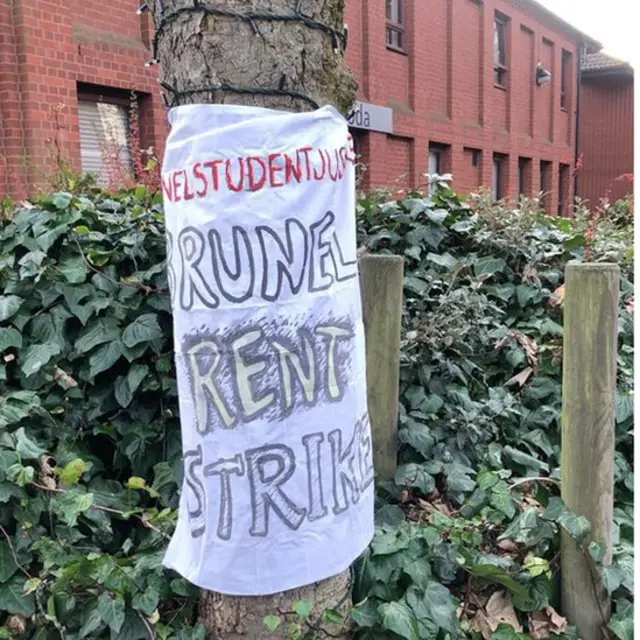 NELSTUDENTJUS
BRUNEL
RENT
STRIKE